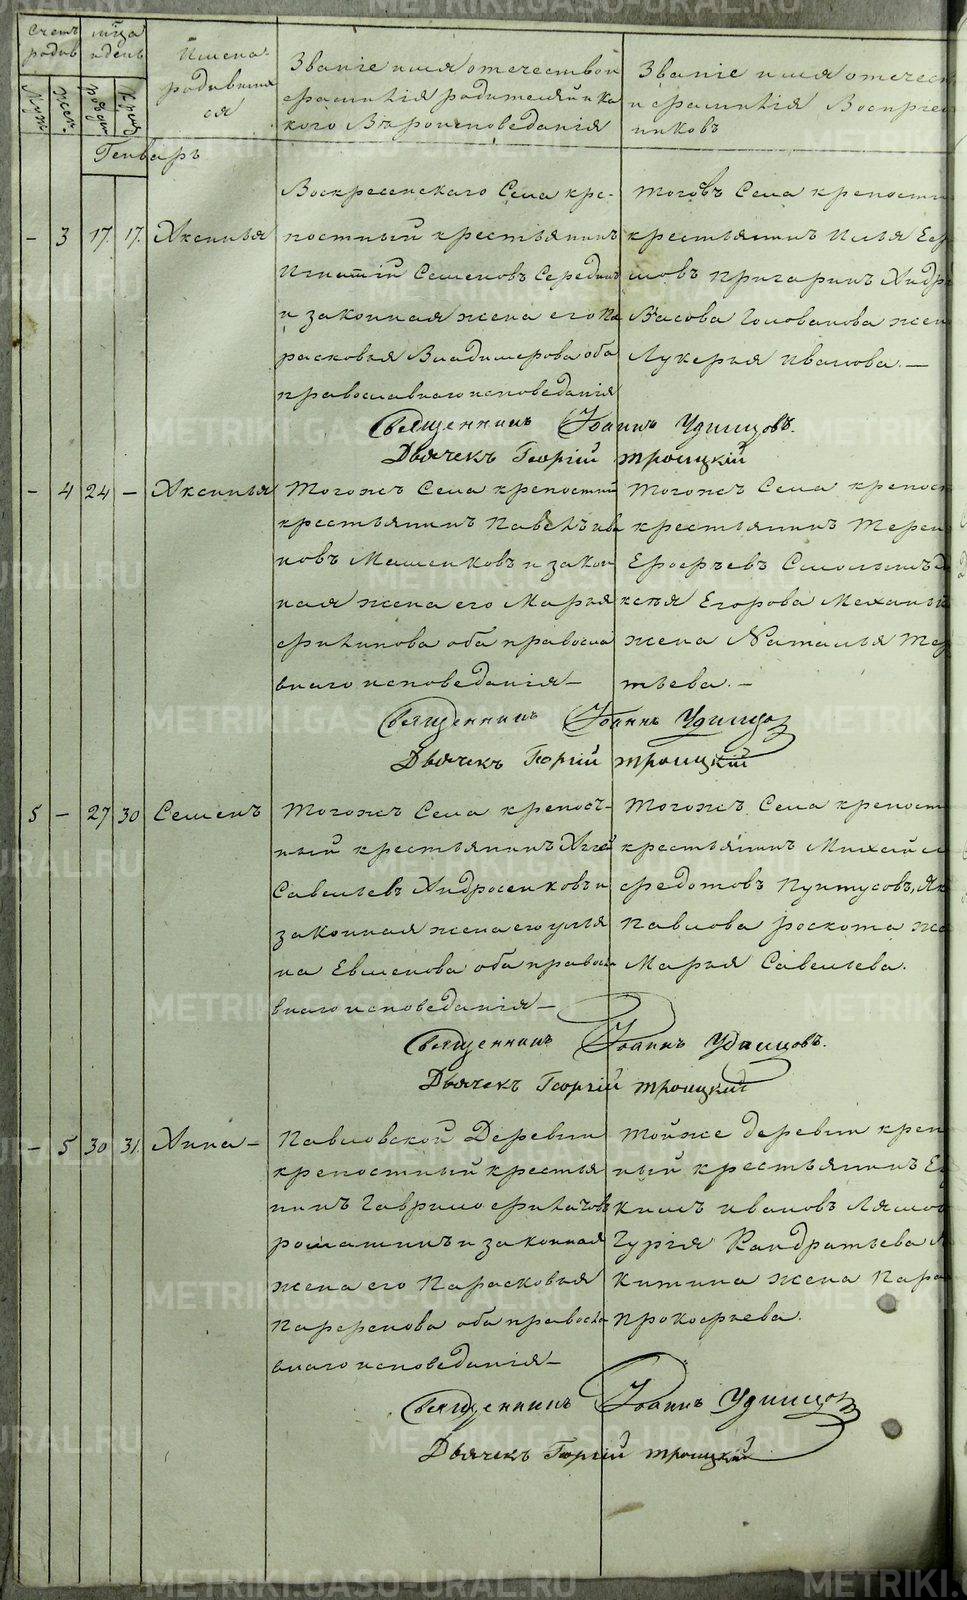 Счетъ родив
мѣца и день
Имена родившихся
Званіе имя отечество и
фамилія родителей и ка
кого Вѣроисповеданія
Званіе имя отечест
и фамилія Воспрее
никовъ
Муж:
жен:
рожден
крещ
Генварь
- 3 17. 17. Аксинья
Воскресенскаго Села кре-
постный крестьянинъ
Игнатій Семеновъ Серединъ
и законная жена его Па
расковья Владимерова оба
православнаго исповеданія
тогожъ Села крепостн
крестьянинъ Илья Еф
мовъ Пригаринъ Андр
Васова Голованова жен
Лукерья Иванова. —
Священникъ Іоаннъ Удинцовъ.
Дьячекъ Георгій Троицкій
- 4 24 - Аксинья
Тогожъ Села крепостный
крестьянинъ Павелъ ива
новъ Машенковъ и закон
ная жена его Марья
филипова оба правосла
внаго исповеданія —
Тогожъ Села крепост
крестьянинъ Терен
Ефоръевъ
Егорова
жена Наталья Тер
тьева. —
Священникъ Іоаннъ Удинцо
Дьячекъ Георгій Троицкій
5 - 27 30 Семенъ
Тогожъ Села крепост-
ный крестьянинъ Агей
Савельевъ Андросенковъ и
законная жена его улья
на Евменова оба правосл
внаго исповеданія —
Тогожъ Села крепост
крестьянинъ Михайл
федотовъ Пунтусовъ, Як
Павлова роскота же
Марья Савельева.
Священникъ Іоаннъ Удинцовъ.
Дьячекъ Георгій Троицкій
- 5 30 31. Анна —
Павловской Деревни
крепостный крестья
нинъ Гаврило филатовъ
ромашинъ и законная
жена его Парасковья
Парфенова оба правосла
внаго исповеданія —
тойже деревни креп
ный крестьянинъ Е
кимъ ивановъ Лямо
Гурья Кандратьева
китина жена Пара
Прокофьева.
Священникъ Іоаннъ Удинцо
Дьячекъ Георгій Троицкій
METRIKI.GASO-URAL.RU